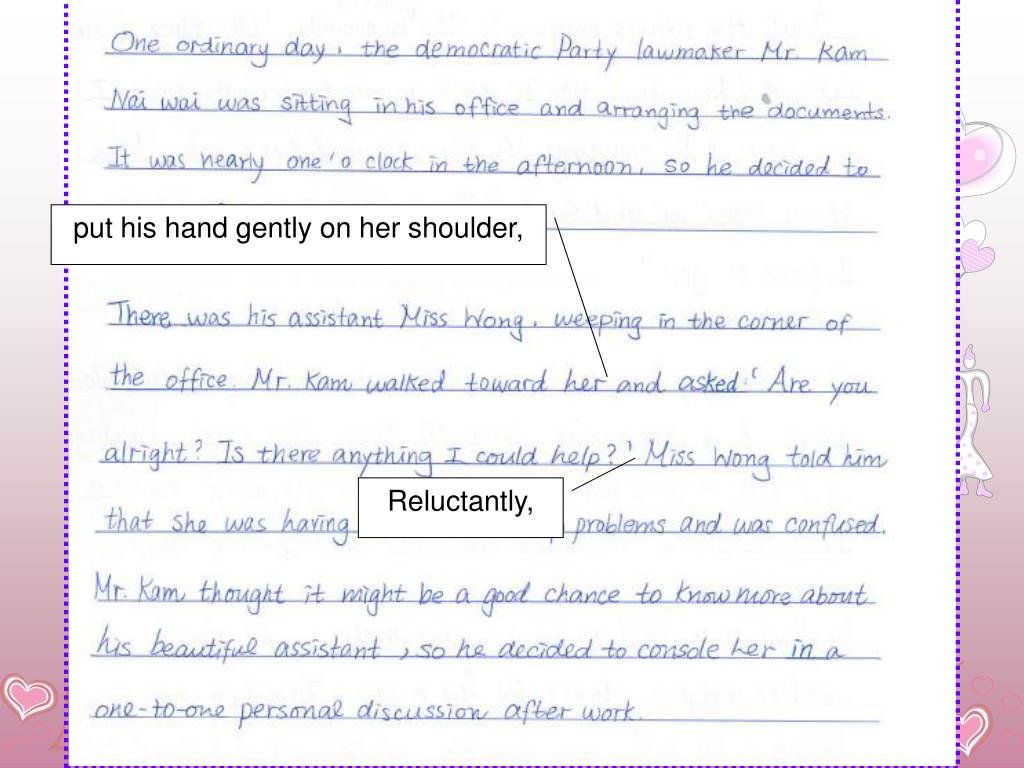 One ordinary day, the democratic Party lawmaker Mr. Kam
Nai wai was sitting in his office and arranging the documents.
It was nearly one 'o clock in the afternoon, so he decided to
put his hand gently on her shoulder,
There was his assistant Miss Wong, weeping in the corner of
the office. Mr. Kam walked toward her and asked:‘ Are you
alright? Is there anything I could help?’ Miss Wong told him
Reluctantly,
that she was having problems and was confused.
Mr. Kam thought it might be a good chance to know more about
his beautiful assistant, so he decided to console her in a
one-to-one personal discussion after work.